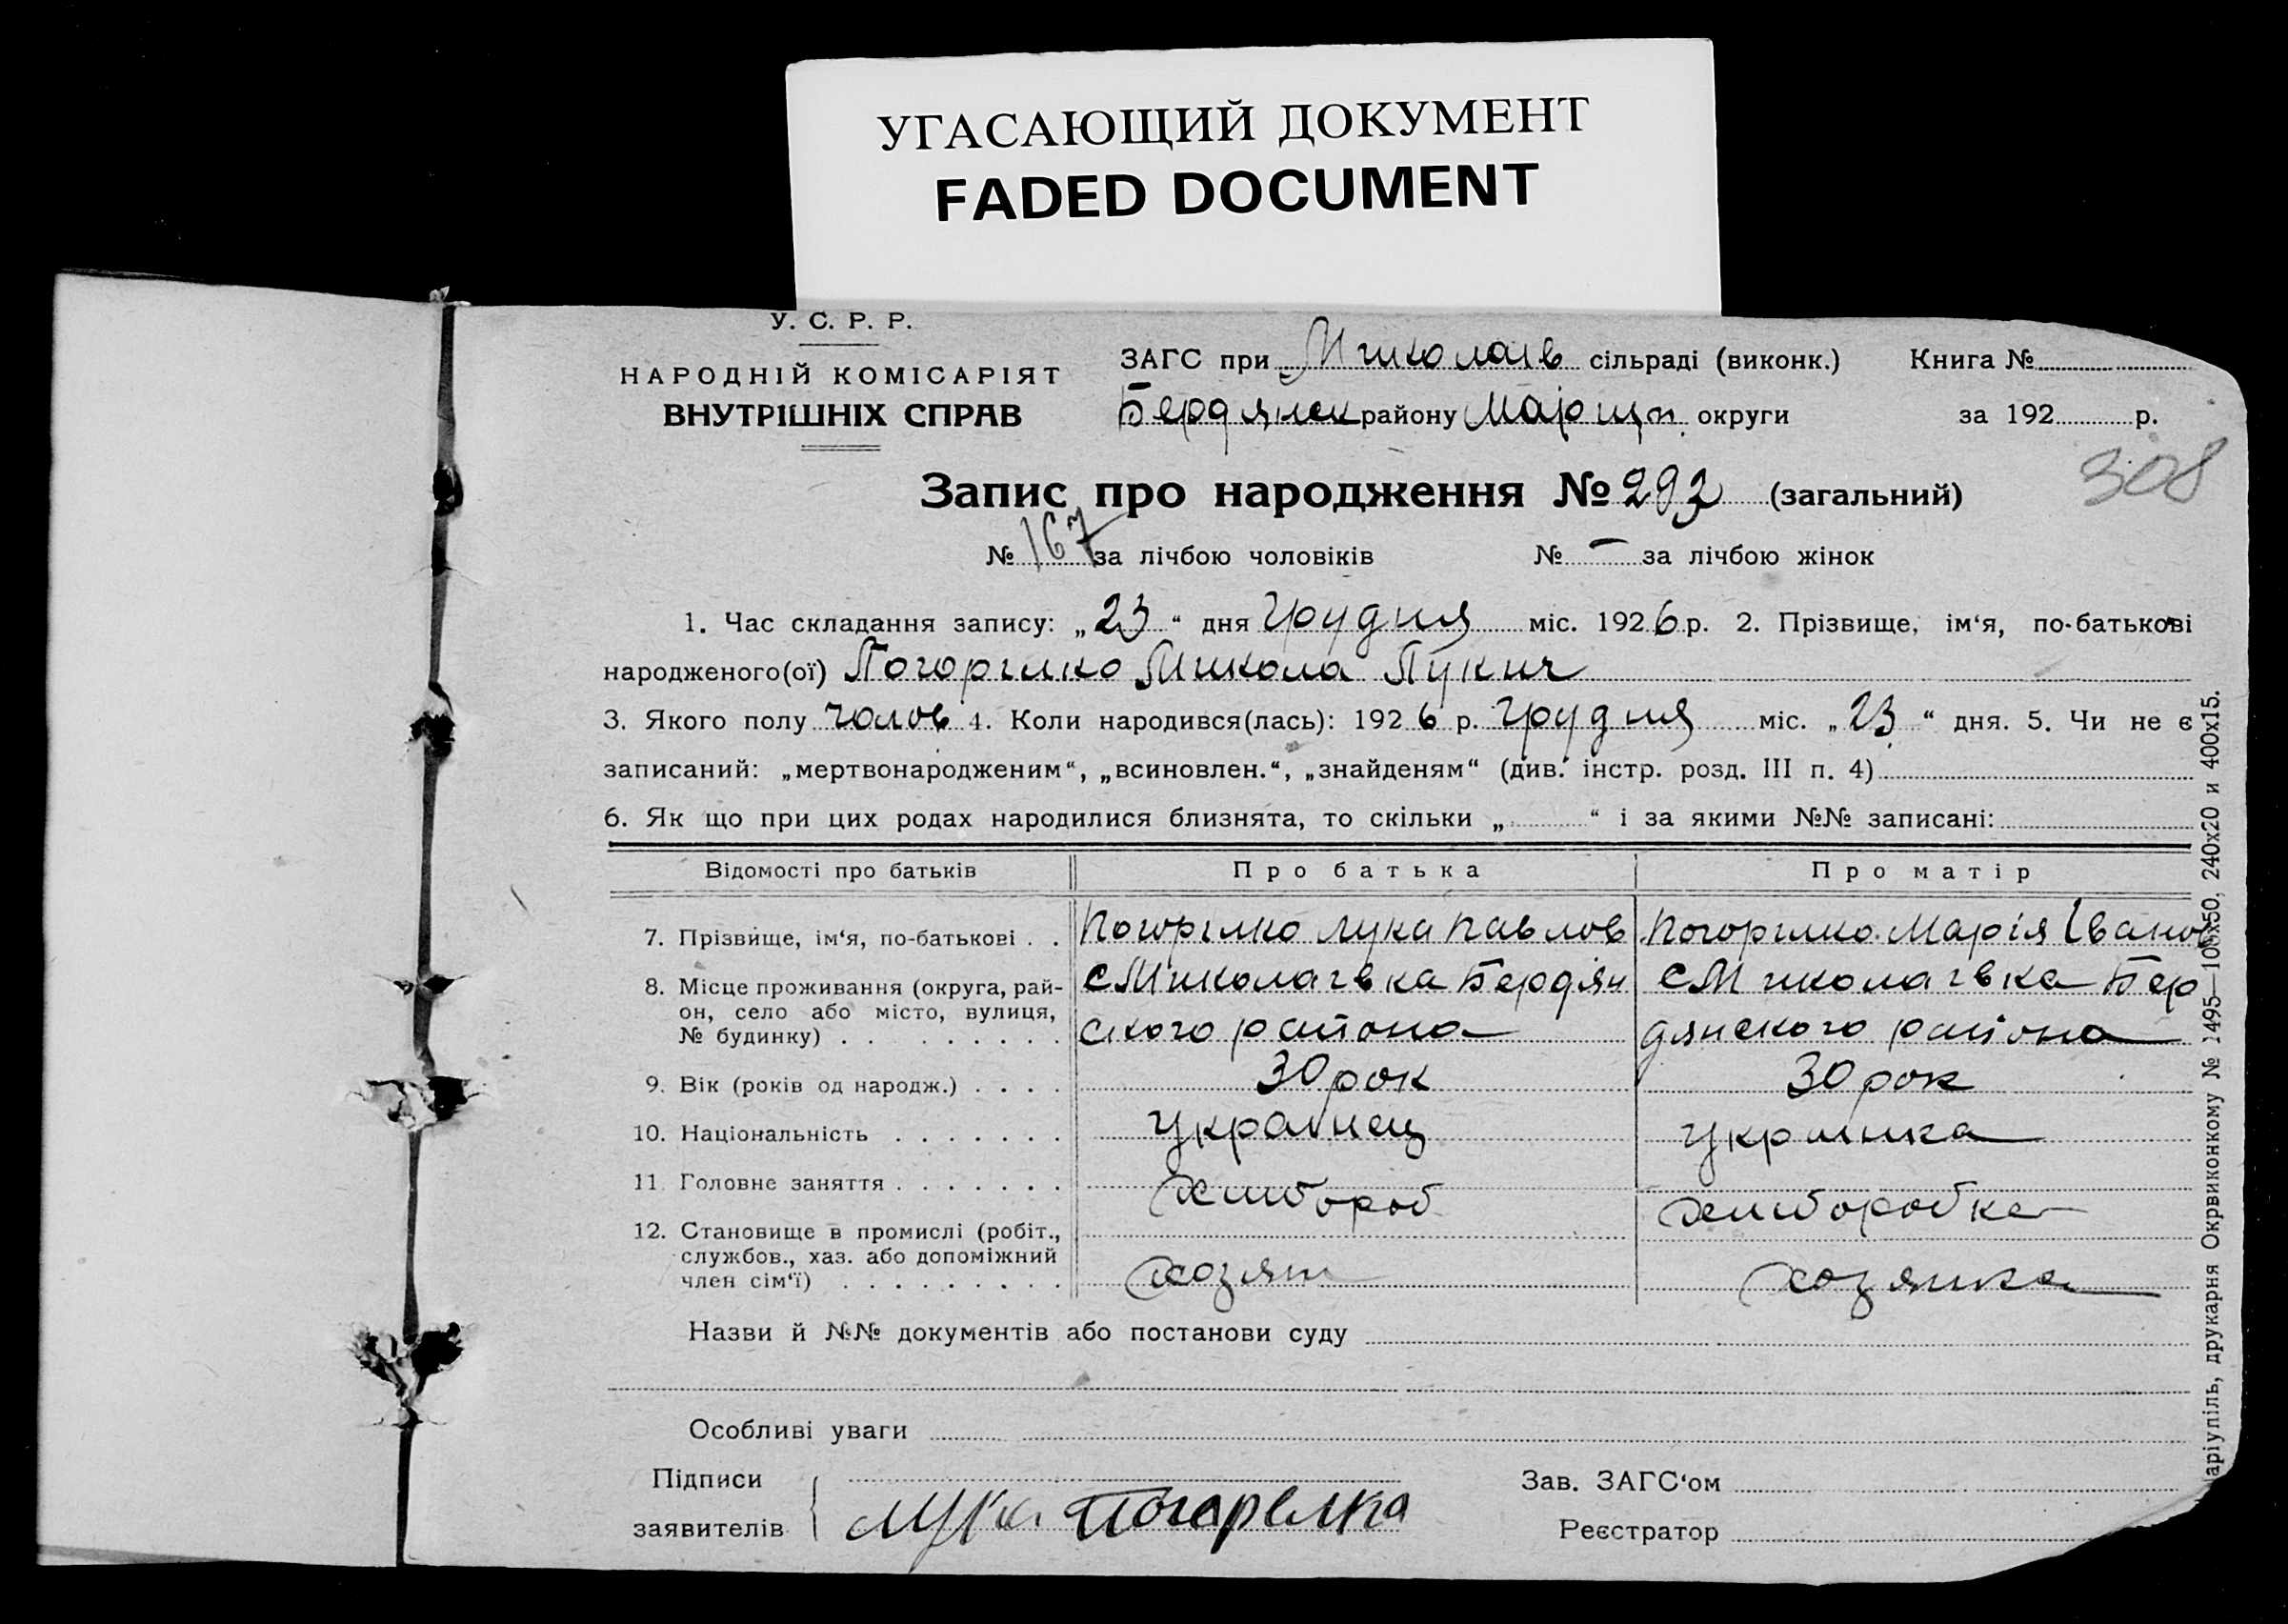 УГАСАЮЩИЙ ДОКУМЕНТ
FADED DOCUMENT
У. С. Р. Р.
НАРОДНІЙ КОМІСАРІЯТ
ВНУТРІШНІХ СПРАВ
ЗАГС при Миколаїв сільраді (виконк.) Книга №
Бердянск району Маріуп. округи за 192 р.
308
Запис про народження № 293 (загальний)
№ 167 за лічбою чоловіків № – за лічбою жінок
1. Час складання запису: „23“ дня Грудня міс. 1926 р. 2. Прізвище, ім‘я, по-батькові
народженого(ої) Погорілко Микола Лукич
3. Якого полу чолов 4. Коли народився(лась): 1926 р. Грудня міс. „23“ дня. 5. Чи не є
записаний: „мертвонародженим“, „всиновлен.“, „знайденям“ (див. інстр. розд. III п. 4)
6. Як що при цих родах народилися близнята, то скільки „ “ і за якими №№ записані:
Відомості про батьків Про батька Про матір
7. Прізвище, ім‘я, по-батькові . . Погорілко Лука Павлов Погорілко Марія Іванов
8. Місце проживання (округа, рай- с Миколаівка Бердян с Миколаівка Бер
он, село або місто, вулиця, ского района дянского района
№ будинку) . . . . . . . . .
9. Вік (років од народж.) . . . . 30 рок 30 рок
10. Національність . . . . . . . Украінец Украінка
11. Головне заняття . . . . . . . хлибороб хлиборобка
12. Становище в промислі (робіт.,
службов., хаз. або допоміжний
член сім‘ї) . . . . . . . . . хозяін хозяика
Назви й №№ документів або постанови суду
Особливі уваги
Підписи
заявителів Лука Погарелка
Зав. ЗАГС‘ом
Реєстратор
аріупіль, друкарня Окрвиконкому № 1495—100х50, 240х20 и 400х15.